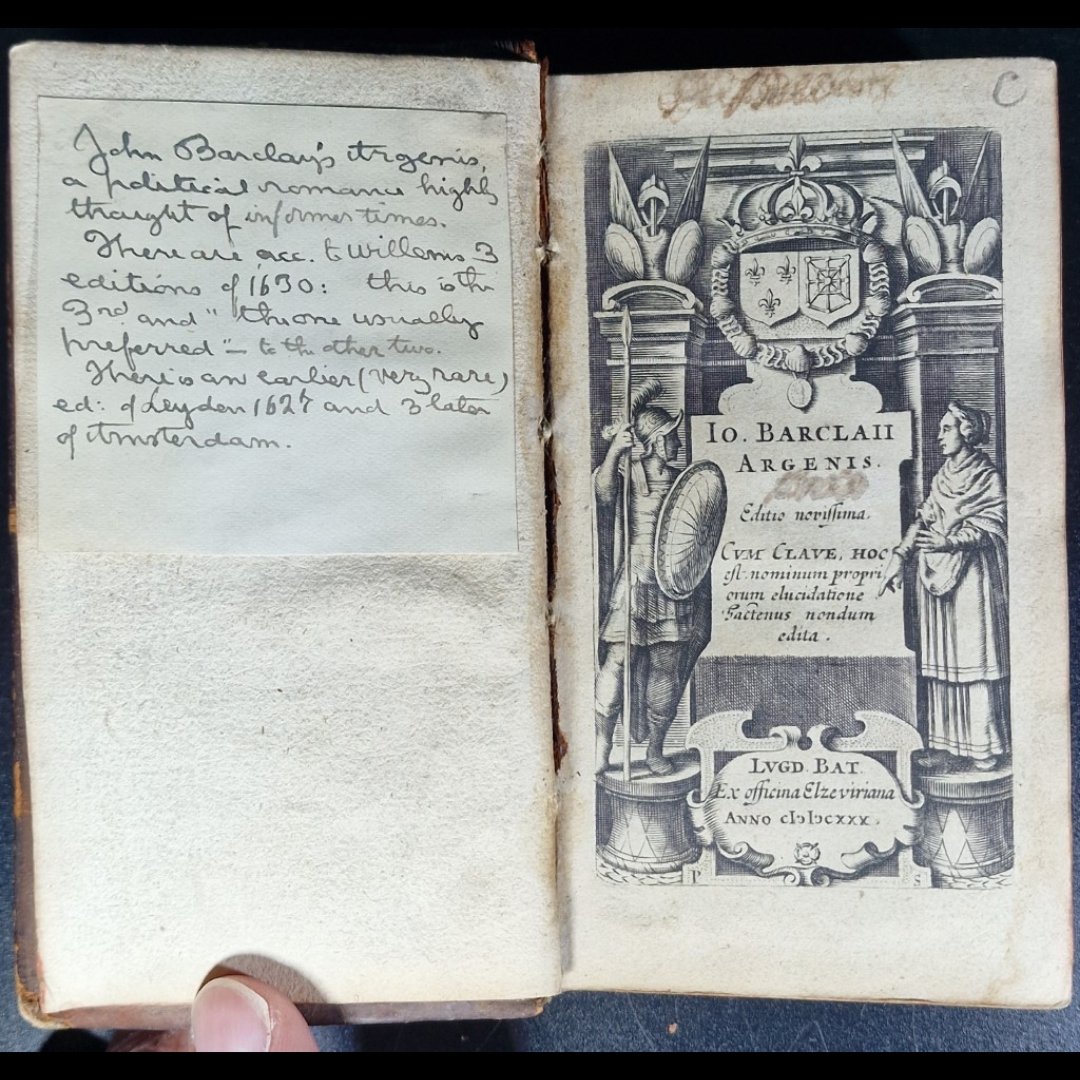 John Barclay's Argenis,
a political romance highly
thought of in former times.
There are acc. to Willems 3
editions of 1630: this is the
3rd and "the one usually
preferred" — to the other two.
There is an earlier (very rare)
ed: of Leyden 1627 and 3 later
of Amsterdam.
C
IO. BARCLAII
ARGENIS.
Editio novissima.
CVM CLAVE, HOC
est. nominum propri
orum elucidatione
hactenus nondum
edita.
LVGD. BAT.
Ex officina Elzeviriana
ANNO cIↄIↄcxxx.
P S